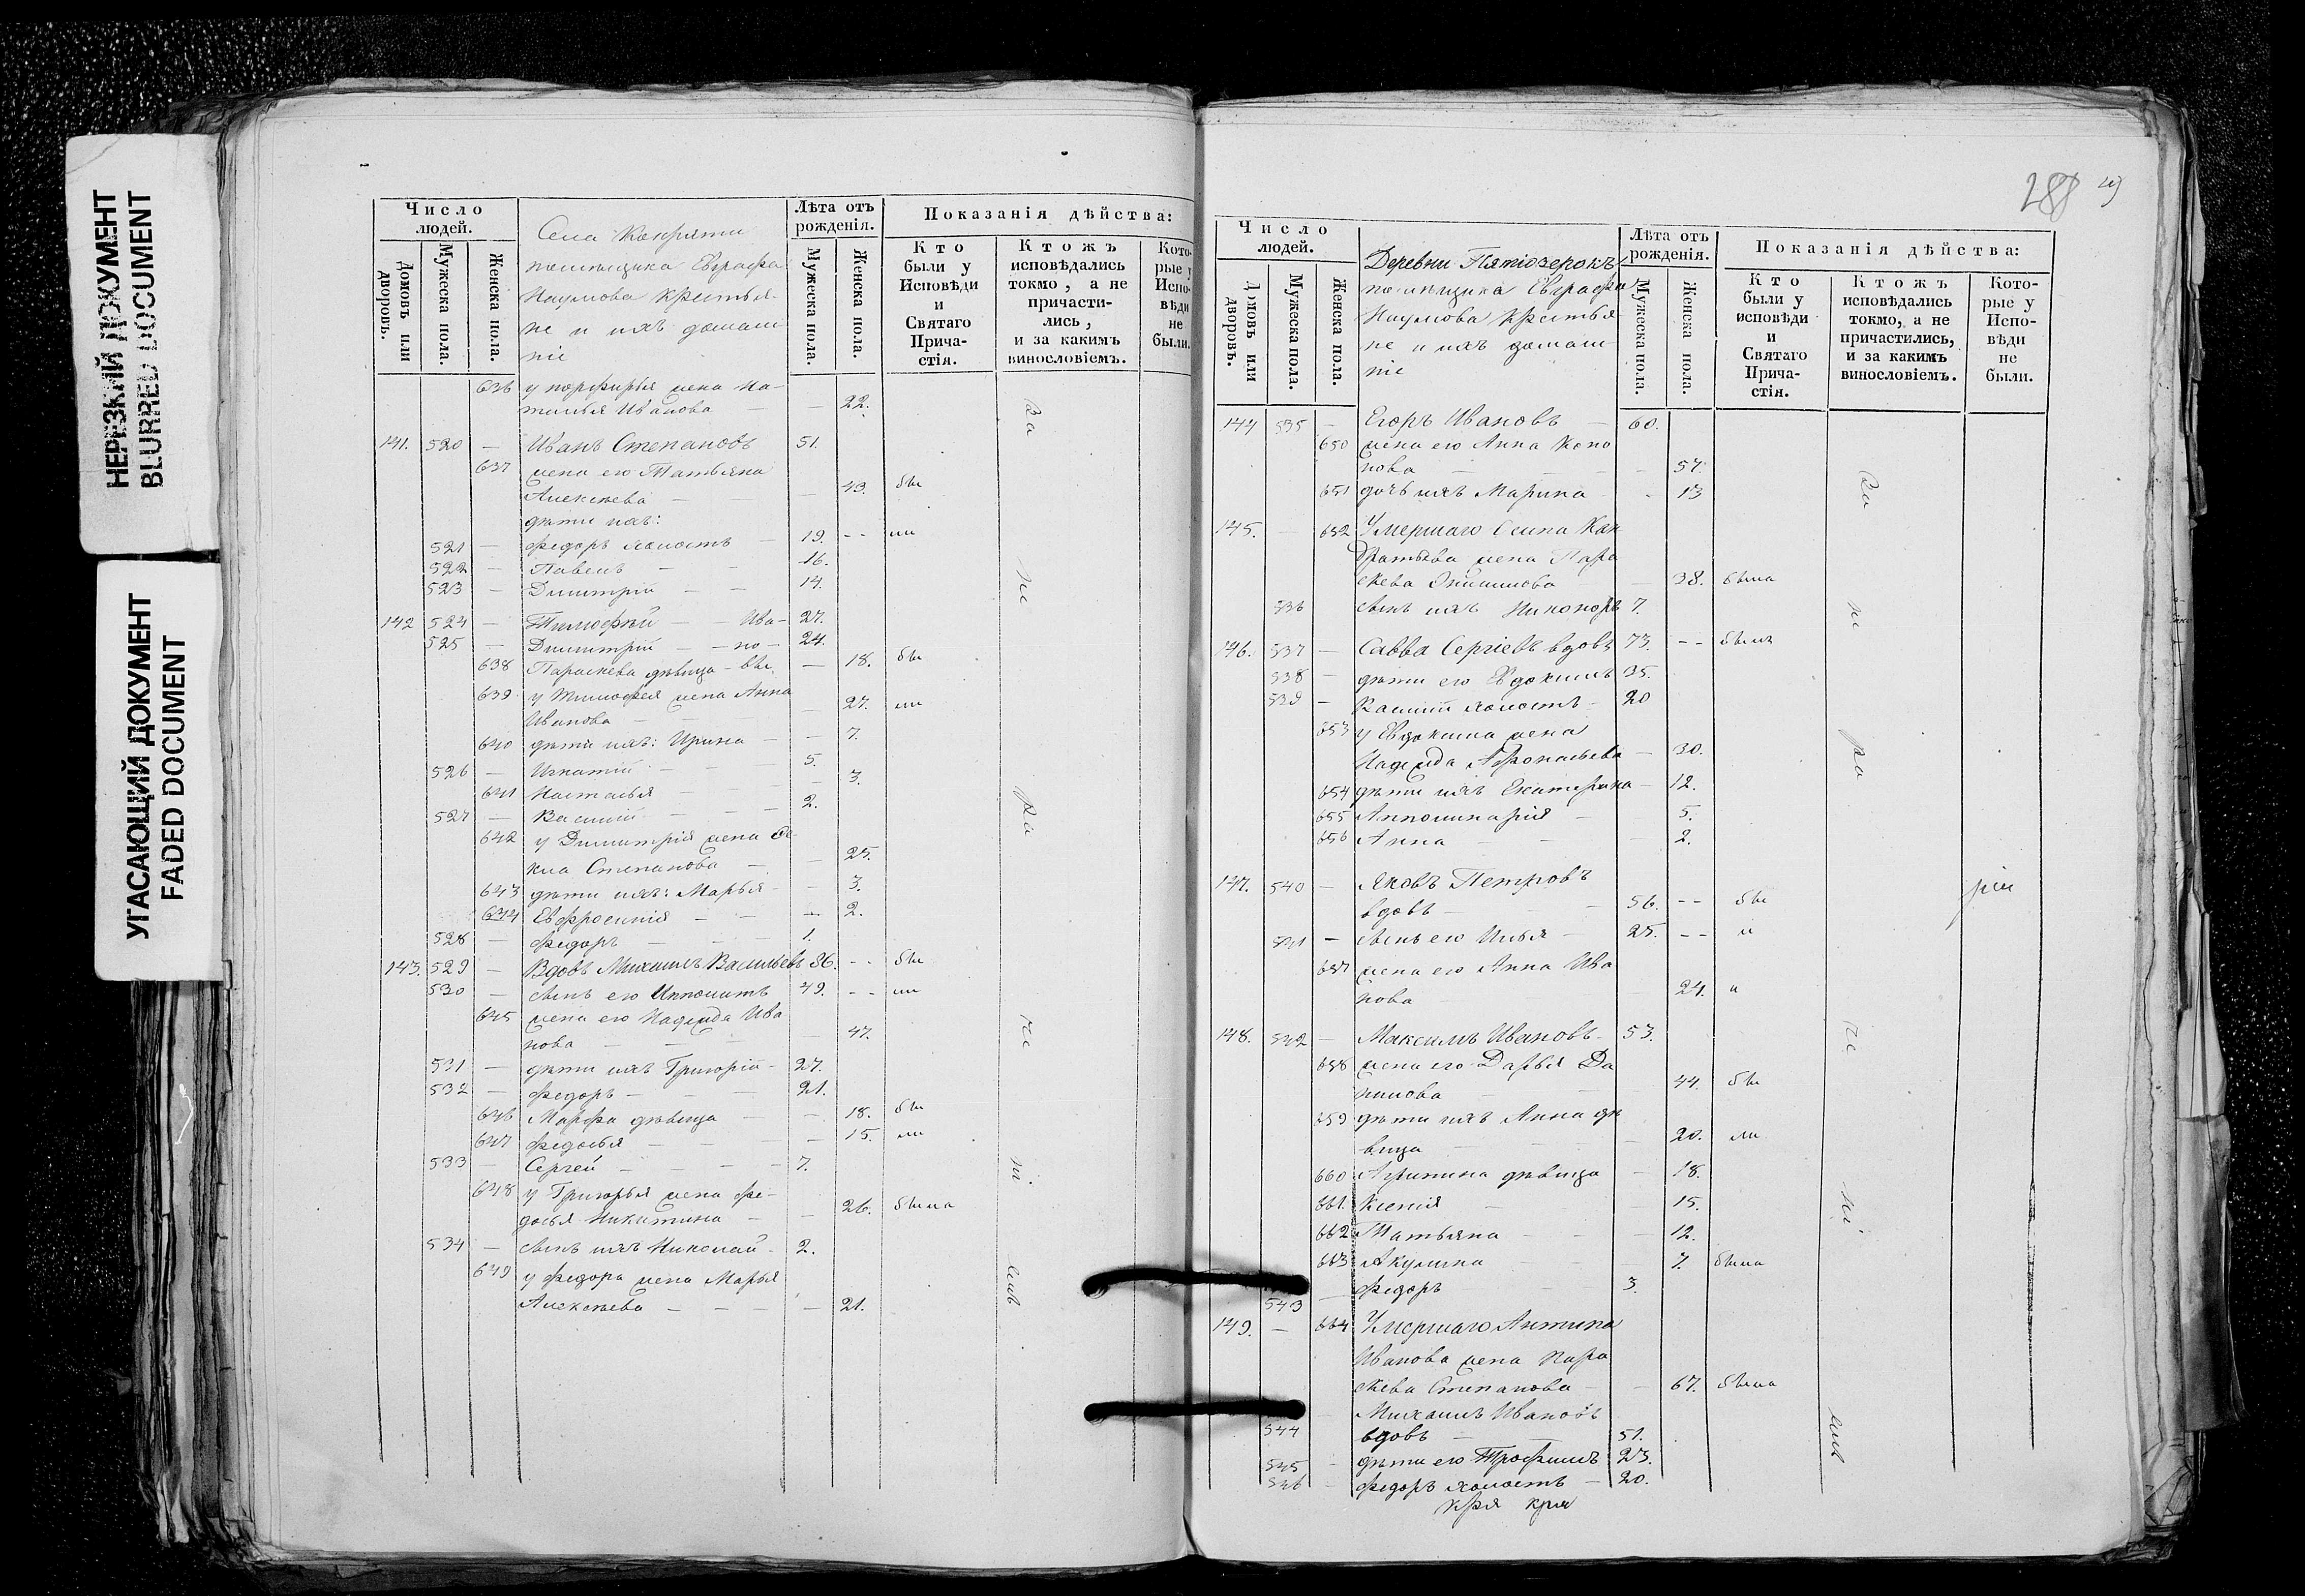 НЕРЕЗКИЙ ДОКУМЕНТ
BLURRED DOCUMENT
УГАСАЮЩИЙ ДОКУМЕНТ
FADED DOCUMENT
Число людей.
Домовъ или дворовъ.
Мужеска пола.
Женска пола.
Села Кокряти
помѣщика Евграфа
Наумова крестья-
не и ихъ домаш
ніе
Лѣта отъ рожденія.
Мужеска пола.
Женска пола.
Показанія дѣйства:
Кто были у Исповѣди и Святаго Прича- стія.
Ктожъ исповѣдались токмо, а не причасти- лись, и за какимъ винословіемъ.
Кото- рые у Испо- вѣди не были.
636 у порфирья жена На-
талья Иванова — — 22.
141. 520 — Иванъ Степановъ 51.
637 жена его Татьяна
Алексѣева — — 43. бы
дѣти ихъ:
521 — Федоръ холостъ — 19. - - ли
522 — Павелъ — — 16.
523 — Димитрій — — 14.
142 524 — Тимофей — Ива- 27.
525 — Димитрій — но- 24.
638 Параскева дѣвица - вы — 18. бы
639 у Тимофея жена Анна
Иванова — — 27. ли
640 дѣти ихъ: Ирина — — 7.
526 — Игнатій — — 5.
641 Наталья — — 3.
527 — Василій — — 2.
642 у Димитрія жена Фе
кла Степанова — — 25.
643 дѣти ихъ: Марья — — 3.
644 Евфросинія — — 2.
528 — Федоръ — — 1.
143. 529 — Вдовъ Михаилъ Васильевъ 86. - - бы
530 — сынъ его Ипполитъ 49. - - ли
645 жена его Надежда Ива
нова — — 47.
531 — дѣти ихъ Григорій - 27.
532 — Федоръ — — 21.
646 Марфа дѣвица — — 18. бы
647 Федосья — — 15. ли
533 — Сергей — — 7.
648 у Григорья жена Фе-
досья Никитина — — 26. была
534 — сынъ ихъ Николай - 2.
649 у Федора жена Марья
Алексѣева — — 21.
За
не
ра
че
ні.
емъ
288
Число людей.
Домовъ или дворовъ.
Мужеска пола.
Женска пола.
Деревни Пятіозерокъ
помѣщика Евграфа
Наумова крестья
не и ихъ домаш
ніе
Лѣта отъ рожденія.
Мужеска пола.
Женска пола.
Показанія дѣйства:
Кто были у исповѣди и Святаго Прича- стія.
Ктожъ исповѣдались токмо, а не причастились, и за какимъ винословіемъ.
Кото- рые у Испо- вѣди не были.
144 535 — Егоръ Ивановъ — 60.
650 жена его Анна Коно
нова — — 57.
651 дочь ихъ Марина — 13
145. — 652 Умершаго Осипа Кон
дратьева жена Пара
скева — 38. была
536 сынъ ихъ Никоноръ 7.
146. 537 — Савва Сергіевъ вдовъ 73. - - былъ
538 — дѣти его Евдокимъ 35.
539 — Василій холостъ - 20
653 у Евдокима жена
Надежда Афонасьева — 30.
654 дѣти ихъ Екатерина — 12.
655 Аполинарія — 5.
656 Анна — — 2.
147. 540 — Яковъ Петровъ
вдовъ — — 56. - - бы
541 — сынъ его Илья — 25. - - и
657 жена его Анна Ива
нова 24. и
148. 542 — Максимъ Ивановъ - 53.
658 жена его Дарья Да
нилова — 44. бы
659 дѣти ихъ Анна дѣ
вица — 20. ли
660 Агрипина дѣвица — 18.
661. Ксенія — 15.
662 Татьяна — 12.
663 Акулина — 7. была
543 — Федоръ — 3.
149. — 664 Умершаго Антипа
Иванова жена Пара
скева Степанова — 67. была
544 — Михаилъ Ивановъ
вдовъ — 51.
545 — дѣти его Трофимъ 23.
546 — Федоръ холостъ — 20.
За
не
ра
че
ні.
емъ